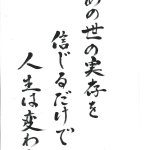 あの世の実存を
信じるだけで
人生は変わ